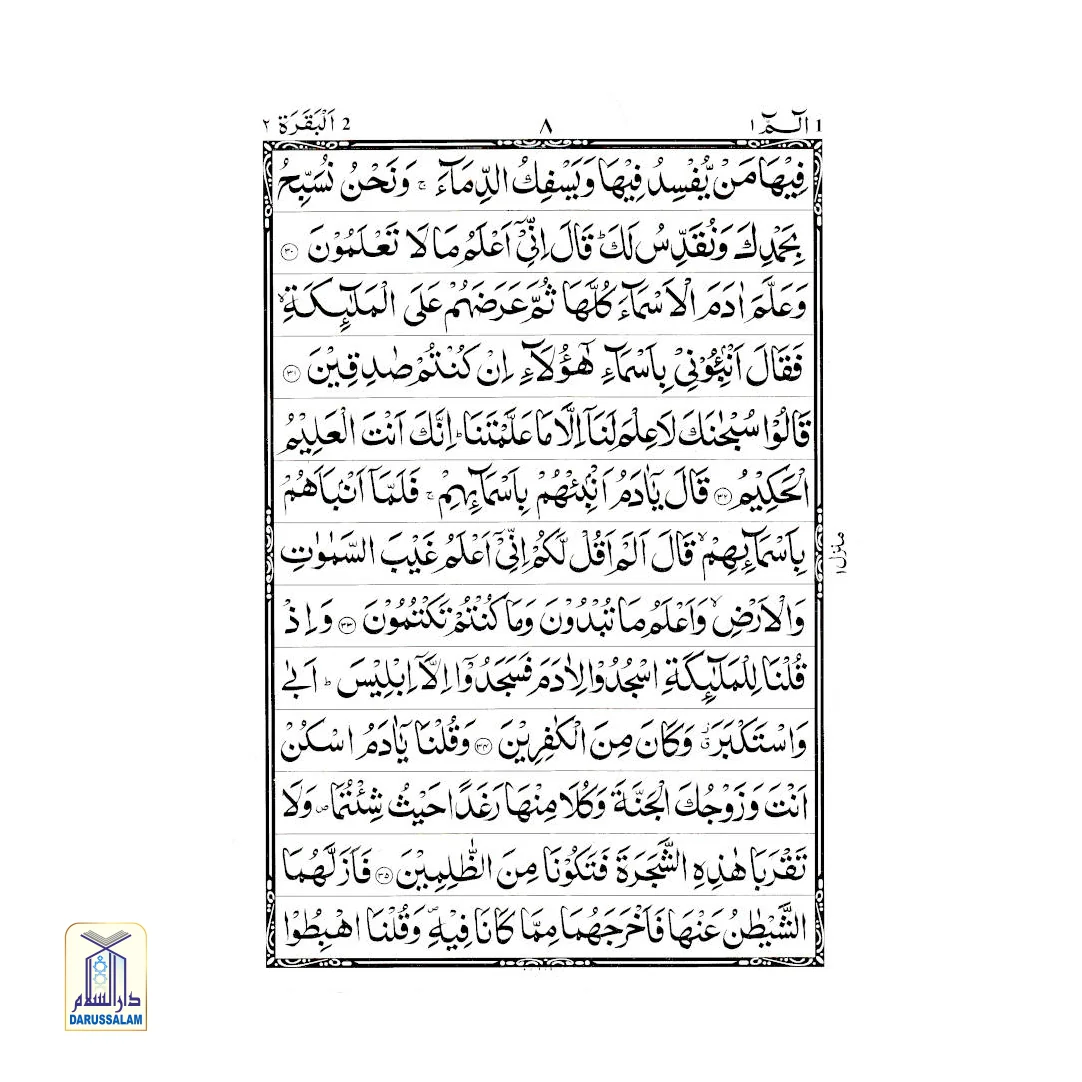 1 الٓـمّٓ ١ ٨ 2 اَلْبَقَرَة ٢
فِيْهَا مَنْ يُّفْسِدُ فِيْهَا وَيَسْفِكُ الدِّمَآءَ ۚ وَنَحْنُ نُسَبِّحُ
بِحَمْدِكَ وَنُقَدِّسُ لَكَ ؕ قَالَ اِنِّىْٓ اَعْلَمُ مَا لَا تَعْلَمُوْنَ ۝٣٠
وَعَلَّمَ اٰدَمَ الْاَسْمَآءَ كُلَّهَا ثُمَّ عَرَضَهُمْ عَلَى الْمَلٰٓئِكَةِ ۙ
فَقَالَ اَنْۢبِئُوْنِىْ بِاَسْمَآءِ هٰٓؤُلَآءِ اِنْ كُنْتُمْ صٰدِقِيْنَ ۝٣١
قَالُوْا سُبْحٰنَكَ لَا عِلْمَ لَنَآ اِلَّا مَا عَلَّمْتَنَا ؕ اِنَّكَ اَنْتَ الْعَلِيْمُ
الْحَكِيْمُ ۝٣٢ قَالَ يٰٓاٰدَمُ اَنْۢبِئْهُمْ بِاَسْمَآئِهِمْ ۚ فَلَمَّآ اَنْۢبَاَهُمْ
بِاَسْمَآئِهِمْ ۙ قَالَ اَلَمْ اَقُلْ لَّكُمْ اِنِّىْٓ اَعْلَمُ غَيْبَ السَّمٰوٰتِ
وَالْاَرْضِ ۙ وَاَعْلَمُ مَا تُبْدُوْنَ وَمَا كُنْتُمْ تَكْتُمُوْنَ ۝٣٣ وَاِذْ
قُلْنَا لِلْمَلٰٓئِكَةِ اسْجُدُوْا لِاٰدَمَ فَسَجَدُوْٓا اِلَّآ اِبْلِيْسَ ؕ اَبٰى
وَاسْتَكْبَرَ ۫ۗ وَكَانَ مِنَ الْكٰفِرِيْنَ ۝٣٤ وَقُلْنَا يٰٓاٰدَمُ اسْكُنْ
اَنْتَ وَزَوْجُكَ الْجَنَّةَ وَكُلَا مِنْهَا رَغَدًا حَيْثُ شِئْتُمَا ۪ وَلَا
تَقْرَبَا هٰذِهِ الشَّجَرَةَ فَتَكُوْنَا مِنَ الظّٰلِمِيْنَ ۝٣٥ فَاَزَلَّهُمَا
الشَّيْطٰنُ عَنْهَا فَاَخْرَجَهُمَا مِمَّا كَانَا فِيْهِ ۪ وَقُلْنَا اهْبِطُوْا
منزل ١
دار السلام
DARUSSALAM